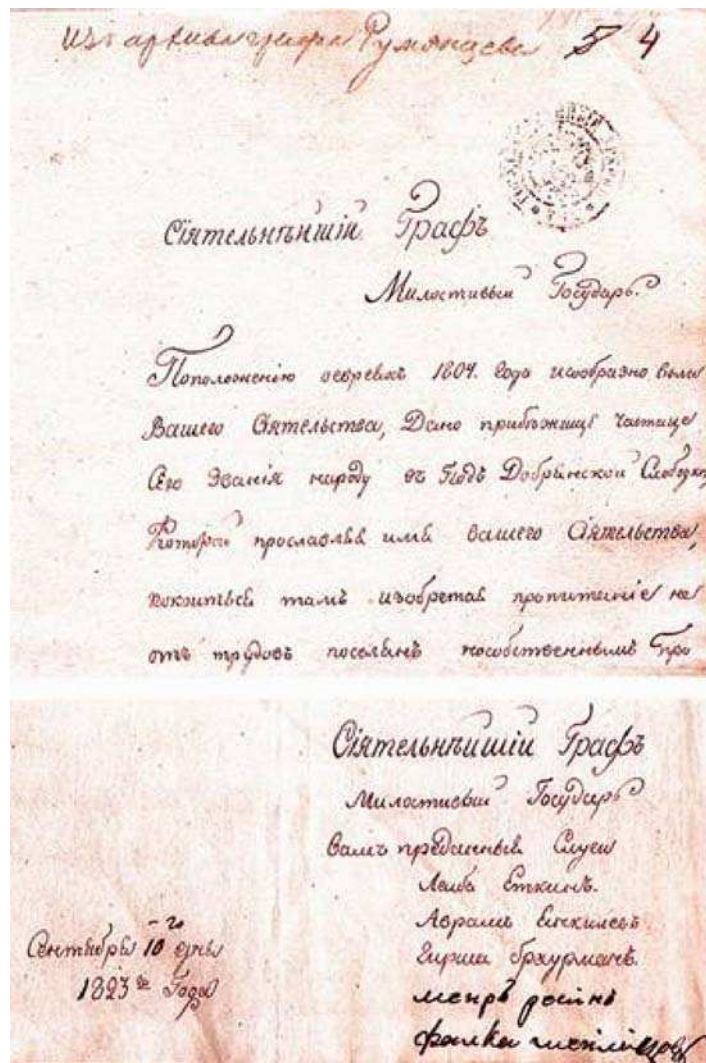 Изъ архива графа Румянцева 5 4
Сіятельнѣйшій Графъ
Милостивый Государь
Поположенію оевреяхъ 1804. Года исообразно воли
Вашего Сіятельства, Дано прибѣжище частице
Сего Званія народу въ Подъ Добрянской Слободки,
Которые прославляя имя вашего Сіятельства,
тамъ изобретая пропитаніе не
отъ трудовъ поселянъ нособственнымъ про
Сіятельнѣйшій Графъ
Милостивый Государь
вамъ преданныя Слуги
Лейба Еткинъ.
Аврамъ
Гирша
Сентября 10 г дня
1823 го Года